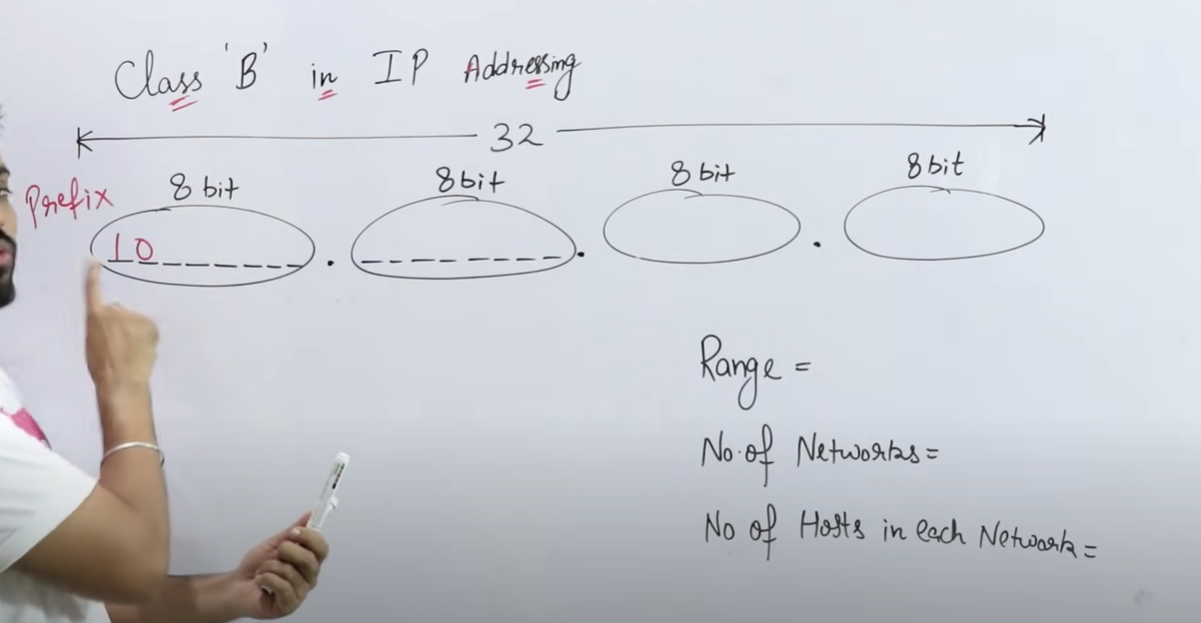 Class 'B' in IP Addressing
32
Prefix 8 bit 8bit 8 bit 8bit
10_ _ _ _ _ _ . _ _ _ _ _ _ _ _ . .
Range =
No. of Networks =
No of Hosts in each Network =